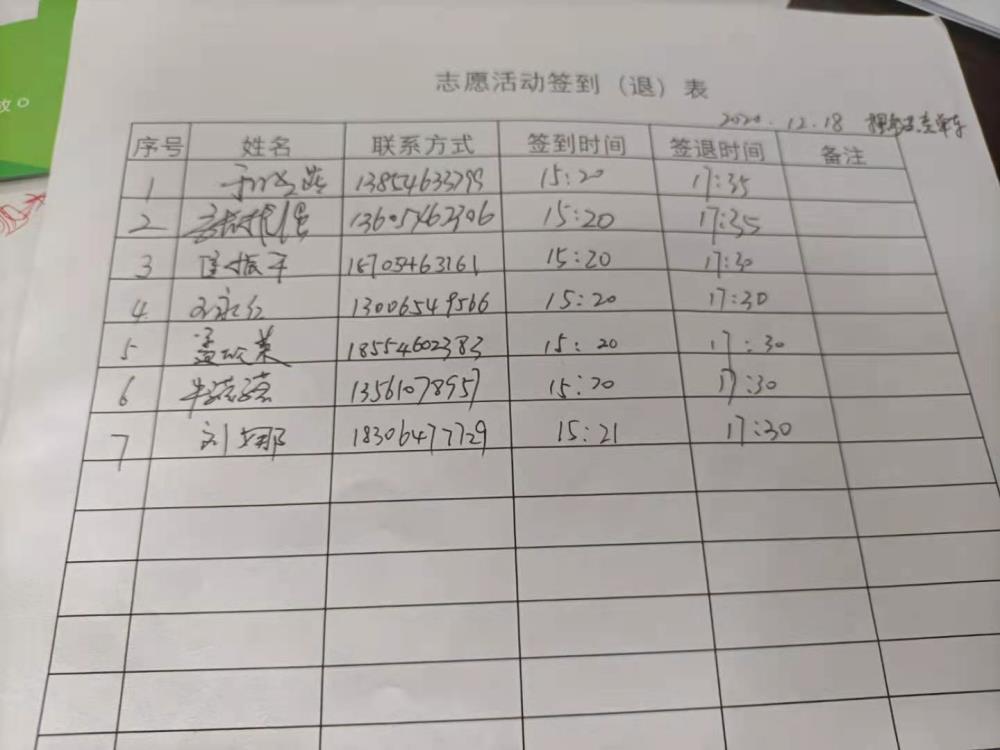 志愿活动签到（退）表
2020.12.18
序号 姓名 联系方式 签到时间 签退时间 备注
1 13854633799 15:20 17:35
2 13605462306 15:20 17:35
3 振平 18705463161 15:20 17:30
4 永红 13006549566 15:20 17:30
5 孟 18554602383 15:20 17:30
6 牛 13561078957 15:20 17:30
7 刘娜 18306477729 15:21 17:30